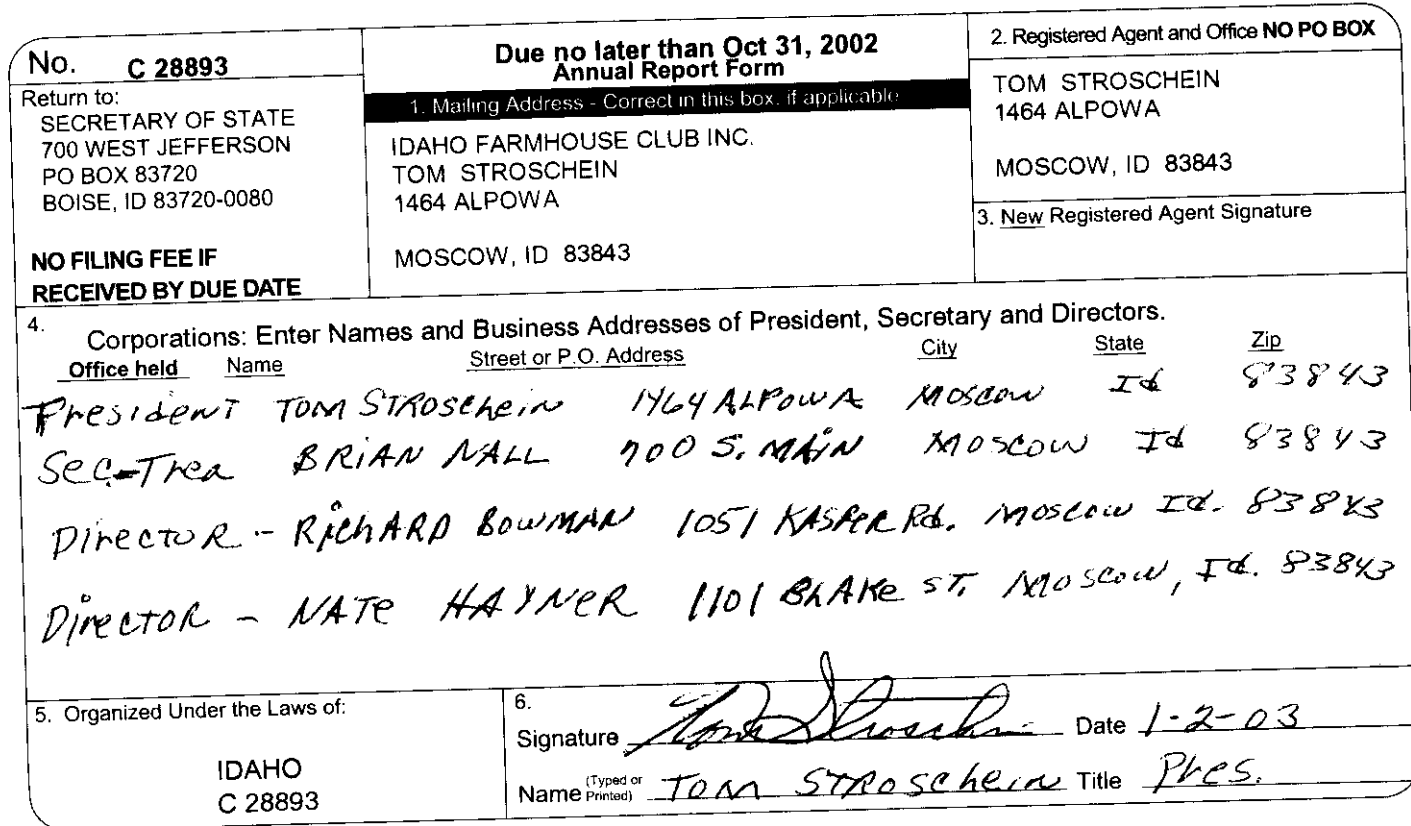 No. C 28893
Return to:
SECRETARY OF STATE
700 WEST JEFFERSON
PO BOX 83720
BOISE, ID 83720-0080
NO FILING FEE IF
RECEIVED BY DUE DATE
Due no later than Oct 31, 2002
Annual Report Form
1. Mailing Address - Correct in this box, if applicable
IDAHO FARMHOUSE CLUB INC.
TOM STROSCHEIN
1464 ALPOWA
MOSCOW, ID 83843
2. Registered Agent and Office NO PO BOX
TOM STROSCHEIN
1464 ALPOWA
MOSCOW, ID 83843
3. New Registered Agent Signature
4. Corporations: Enter Names and Business Addresses of President, Secretary and Directors.
Office held Name Street or P.O. Address City State Zip
President TOM STROSCHEIN 1464 ALPOWA MOSCOW Id 83843
Sec-Trea BRIAN NALL 700 S. MAIN MOSCOW Id 83843
DIRECTOR - RICHARD BOWMAN 1051 KASPER Rd. MOSCOW Id. 83843
DIRECTOR - NATE HAYNER 1101 BLAKE ST. MOSCOW, Id. 83843
5. Organized Under the Laws of:
IDAHO
C 28893
6.
Signature Tom Stroschein Date 1-2-03
Name (Typed or Printed) TOM STROSCHEIN Title Pres.